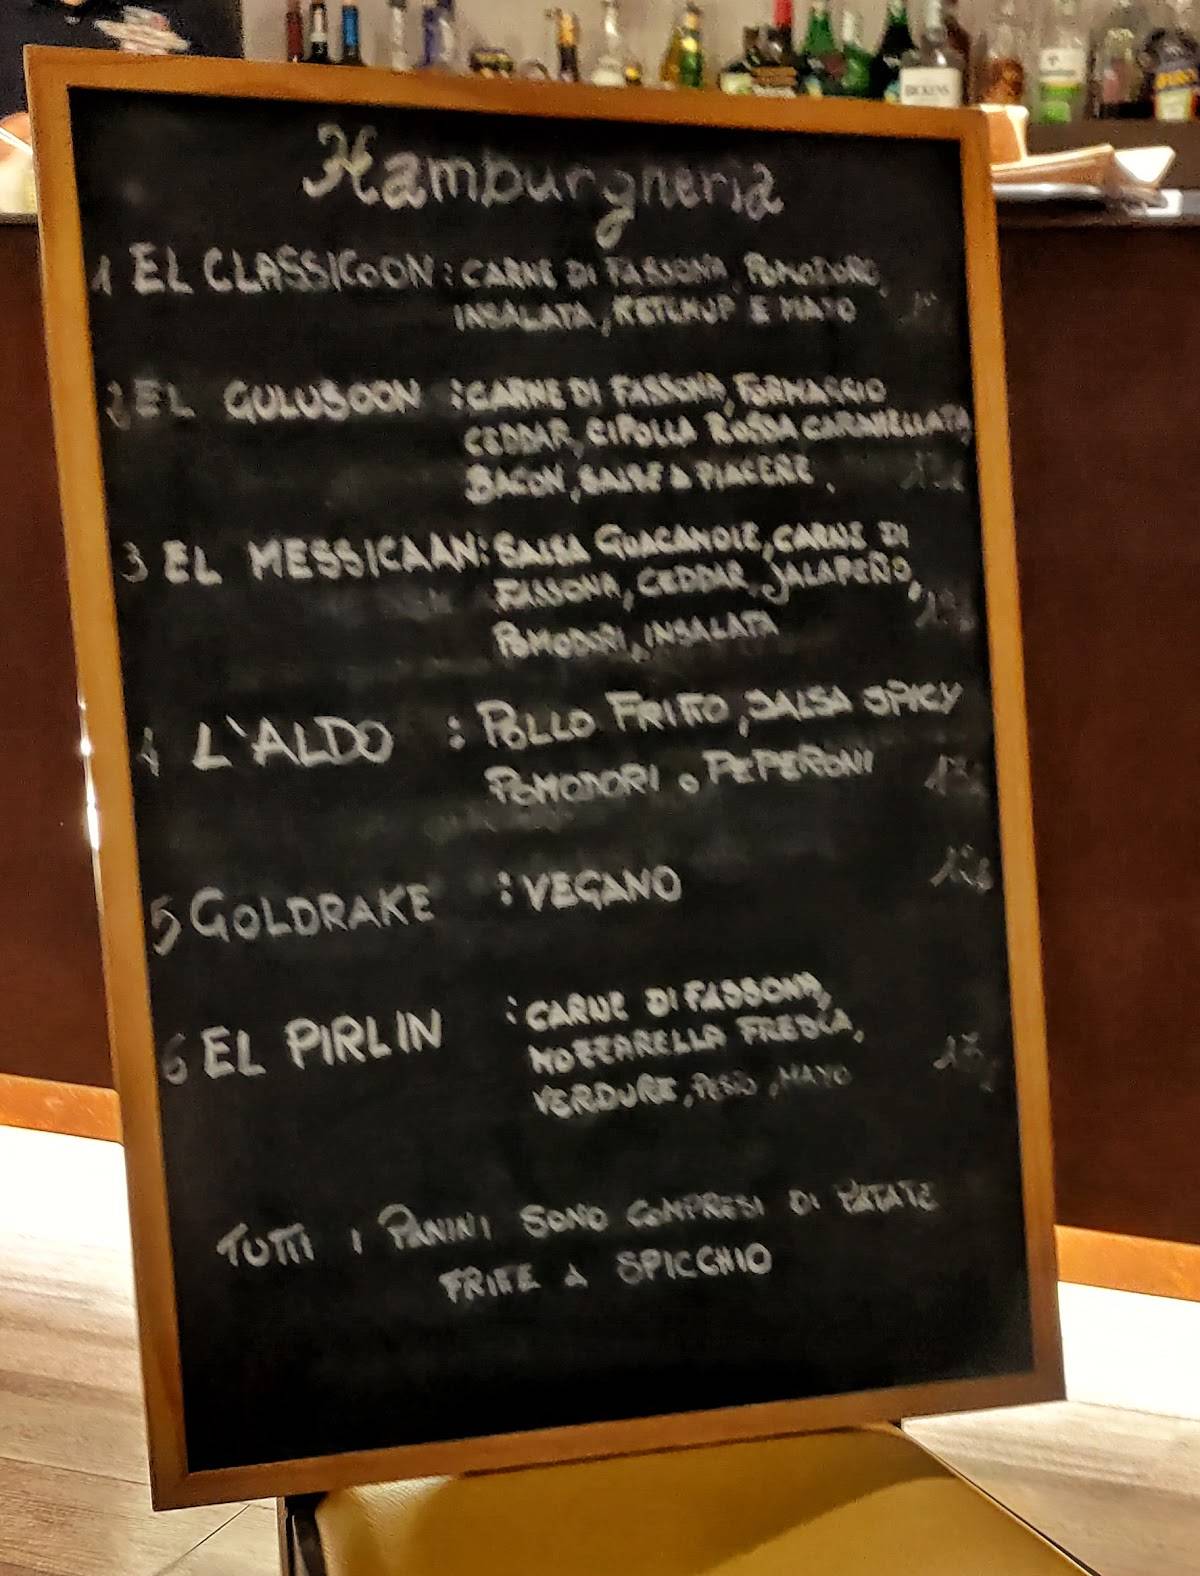 Hamburgheria
1 EL CLASSICOON: CARNE DI FASSONA, POMODORO,
INSALATA, KETCHUP E MAYO
2 EL GULUSOON : CARNE DI FASSONA, FORMAGGIO
CEDDAR, CIPOLLA ROSSA CARAMELLATA
BACON, SALSE A PIACERE.
3 EL MESSICAAN: SALSA GUACAMOLE, CARNE DI
FASSONA, CEDDAR, JALAPEÑO,
POMODORI, INSALATA
4 L'ALDO : POLLO FRITTO, SALSA SPICY
POMODORI O PEPERONI 13€
5 GOLDRAKE : VEGANO 12€
6 EL PIRLIN : CARNE DI FASSONA,
MOZZARELLA FRESCA,
VERDURE, PESTO, MAYO 13€
TUTTI I PANINI SONO COMPRESI DI PATATE
FRITTE A SPICCHIO